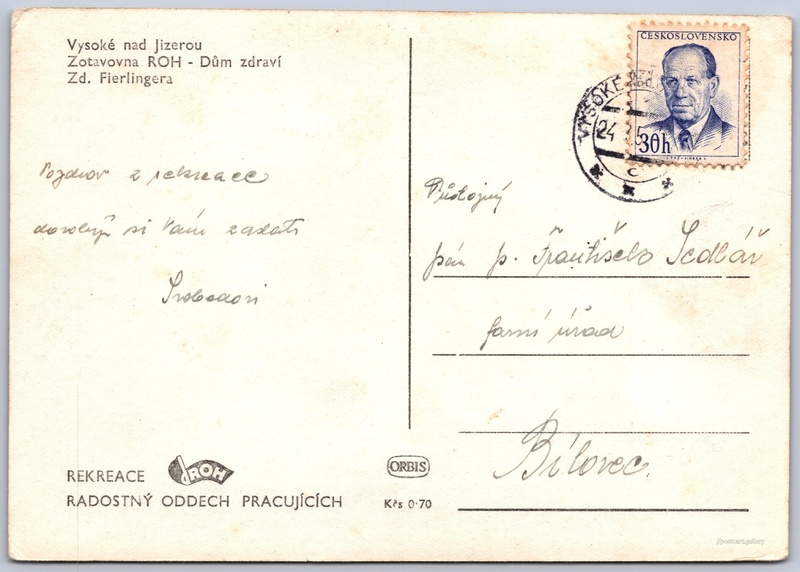 Vysoké nad Jizerou
Zotavovna ROH - Dům zdraví
Zd. Fierlingera
Pozdrav z rekreace
dovolují si Vám zaslati
Svobodovi
REKREACE ROH
RADOSTNÝ ODDECH PRACUJÍCÍCH
ORBIS
Kčs 0·70
ČESKOSLOVENSKO
30h
VYSOKÉ
24
c
Důstojný
pán p. František Sedlář
farní úřad
Bílovec.